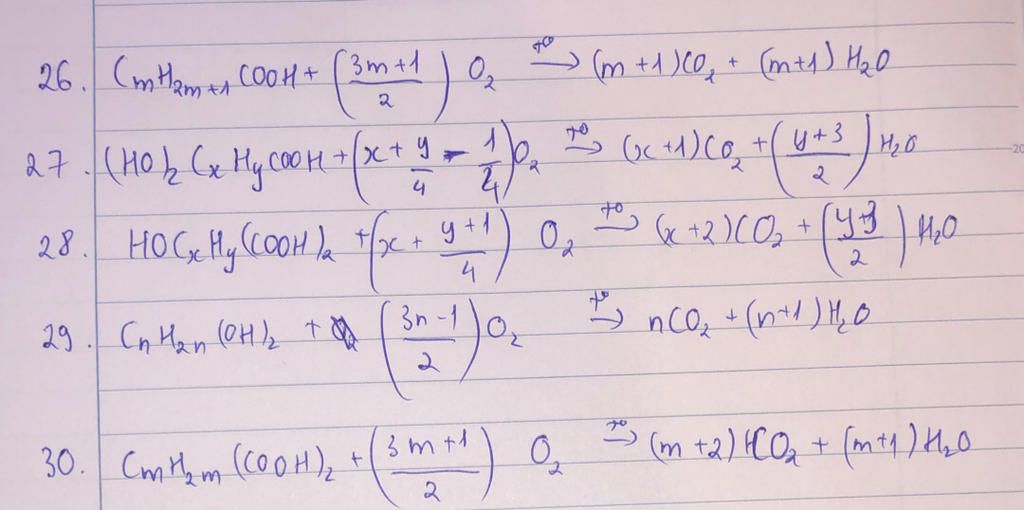 26. CmH2m+1COOH + (3m+1/2) O2 →t° (m+1)CO2 + (m+1)H2O
27. (HO)2CxHyCOOH + (x + y/4 - 1/4)O2 →t° (x+1)CO2 + (y+3/2)H2O
28. HOCxHy(COOH)2 + (x + y+1/4) O2 →t° (x+2)CO2 + (y+3/2)H2O
29. CnH2n(OH)2 + (3n-1/2)O2 →t° nCO2 + (n+1)H2O
30. CmH2m(COOH)2 + (3m+1/2) O2 →t° (m+2)CO2 + (m+1)H2O